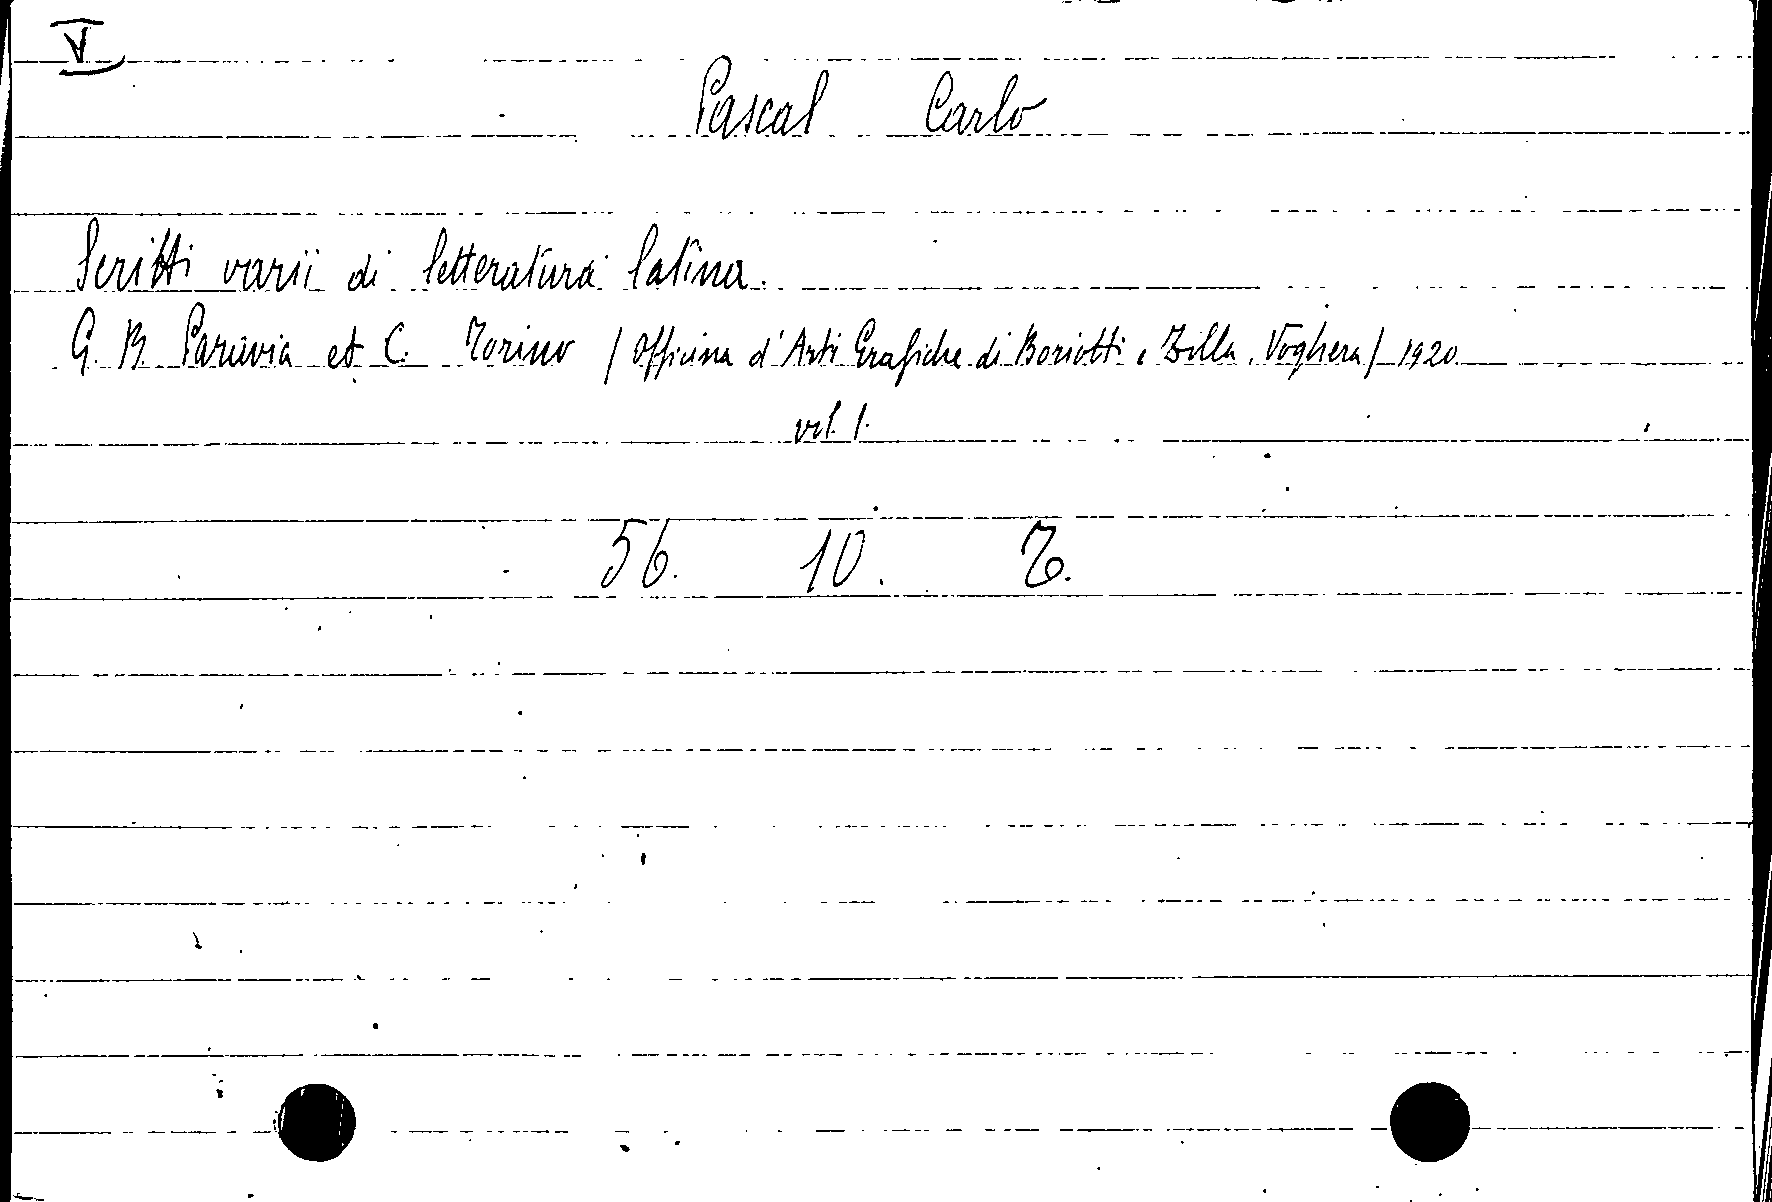 V
Pascal Carlo
Scritti varii di letteratura latina.
G. B. Paravia et C. Torino (Officina d'Arti Grafiche di Boriotti e Zolla, Voghera) 1920
vol. 1.
56. 10. 7.